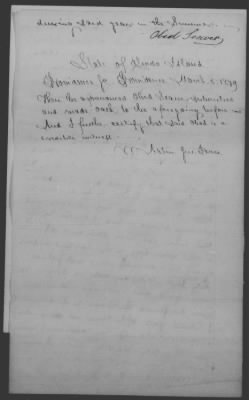 during said year in the Summer
Obed Seaver
State of Rhode Island
Providence Sc. Providence March 5. 1839
Then the aforenamed Obed Seaver subscribed
and made oath to the aforegoing before
And I further certify that said Obed is a
credible witness
Justice Peace